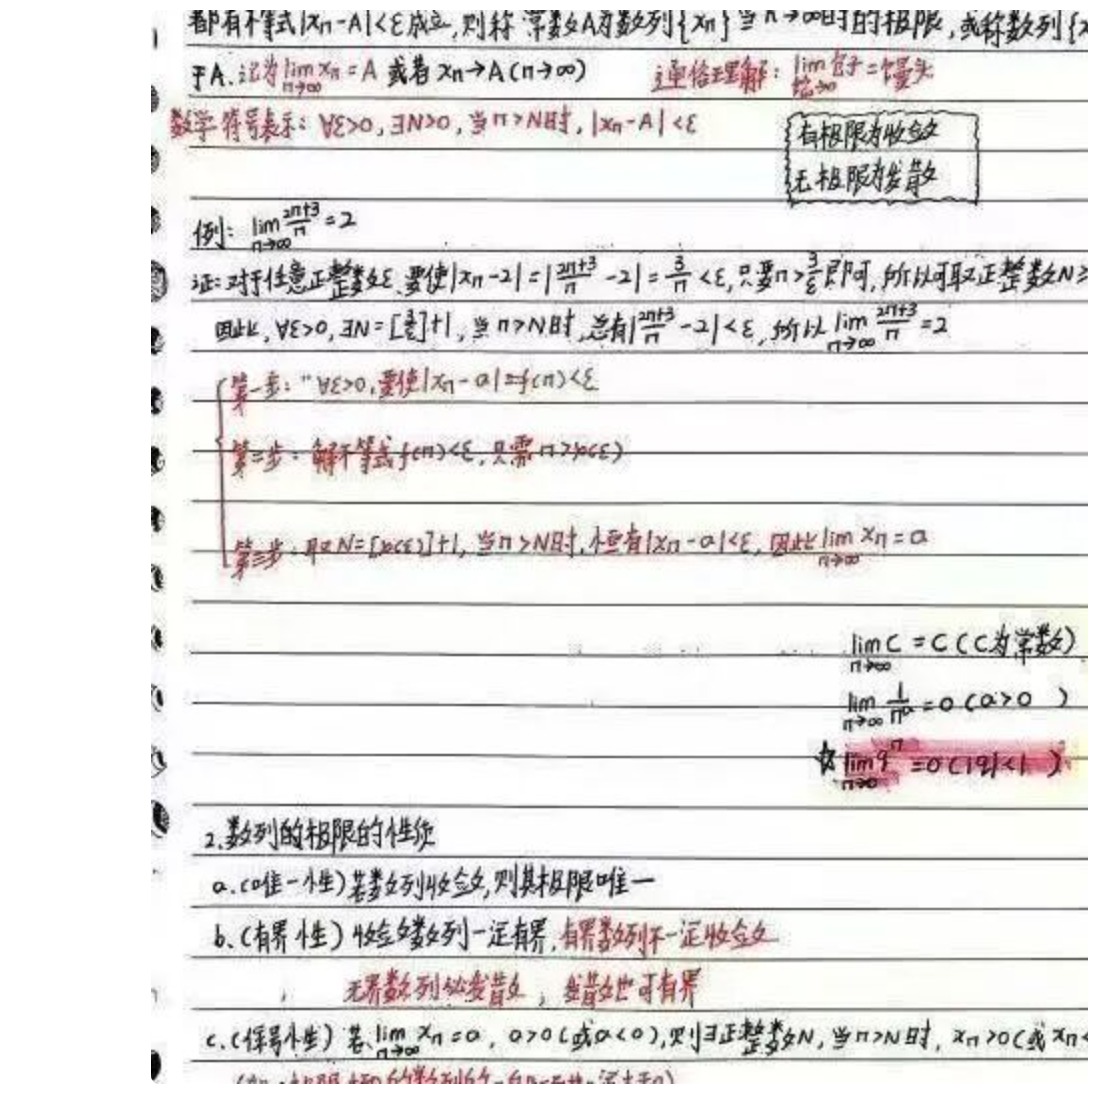 都有不等式|xn-A|<ε成立,则称 常数A为数列{xn}当n→∞时的极限,或称数列{x
于A.记为lim xn=A 或者 xn→A(n→∞) 通俗理解:lim包子=馒头
n→∞ 馅→0
数学符号表示:∀ε>0,∃N>0,当n>N时,|xn-A|<ε
有极限为收敛
无极限为发散
例:lim (2n+3)/n=2
n→∞
证:对于任意正整数ε,要使|xn-2|=|(2n+3)/n-2|=3/n<ε,只要n>3/ε即可,所以可取正整数N≥
因此,∀ε>0,∃N=[3/ε]+1,当n>N时,总有|(2n+3)/n-2|<ε,所以lim (2n+3)/n=2
n→∞
第一步:"∀ε>0,要使|xn-a|=f(n)<ε
第二步:解不等式f(n)<ε,只需n>φ(ε)
第三步:取N=[φ(ε)]+1,当n>N时,恒有|xn-a|<ε,因此lim xn=a
n→∞
lim C=C(C为常数)
n→∞
lim 1/n^a=0(a>0 )
n→∞
☆lim q^n=0(|q|<1 )
2.数列的极限的性质
a.(唯一性)若数列收敛,则其极限唯一
b.(有界性)收敛数列一定有界,有界数列不一定收敛
无界数列必发散,发散也可有界
c.(保号性)若lim xn=a,a>0(或a<0),则∃正整数N,当n>N时,xn>0(或xn<
n→∞